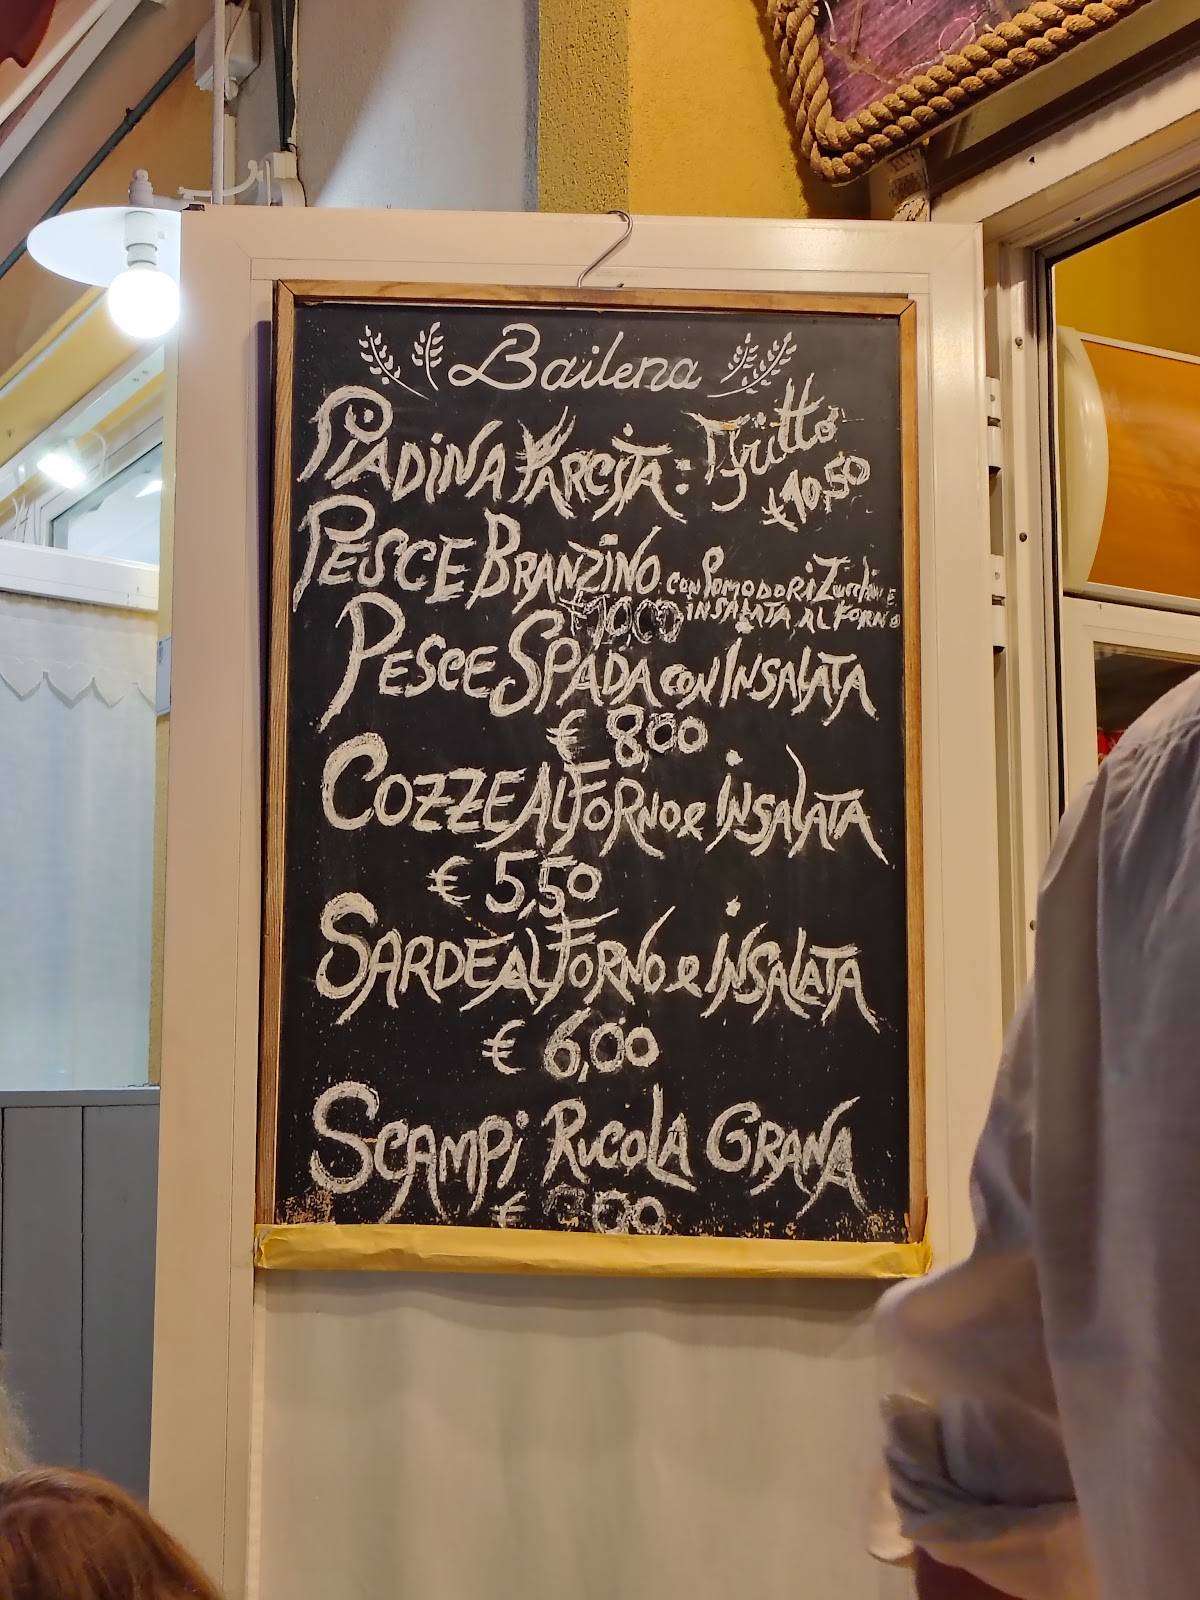 Bailena
PIADINA FARCITA: Fritto
€ 10,50
PESCE BRANZINO CON POMODORI Zucchine
INSALATA AL FORNO
PESCE SPADA CON INSALATA
€ 8,00
COZZE AL FORNO e INSALATA
€ 5,50
SARDE AL FORNO e INSALATA
€ 6,00
SCAMPI RUCOLA GRANA